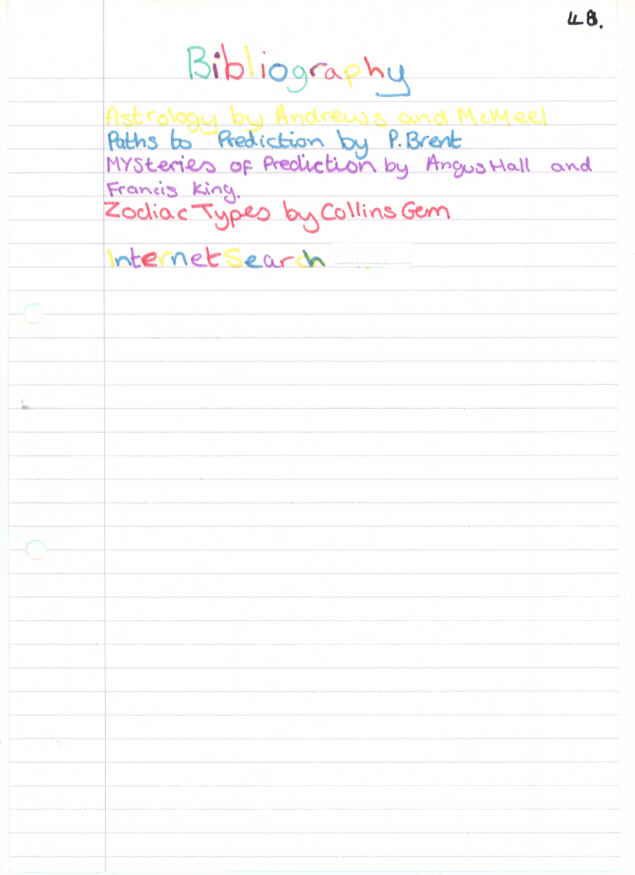 48.
Bibliography
Astrology by Andrews and McMeel
Paths to Prediction by P. Brent
MYSteries of Prediction by Angus Hall and
Francis King.
Zodiac Types by Collins Gem
Internet Search